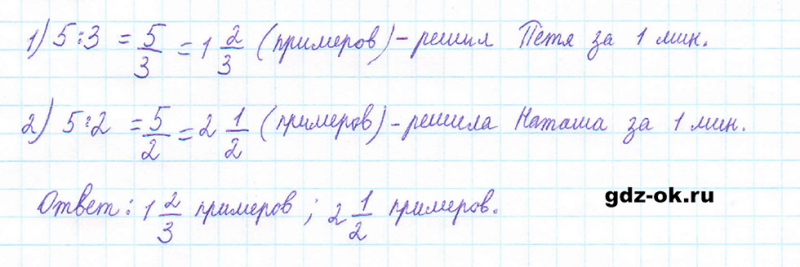 1) 5:3 = 5/3 = 1 2/3 (примеров) - решил Петя за 1 мин.
2) 5:2 = 5/2 = 2 1/2 (примеров) - решила Наташа за 1 мин.
Ответ: 1 2/3 примеров; 2 1/2 примеров.
gdz-ok.ru